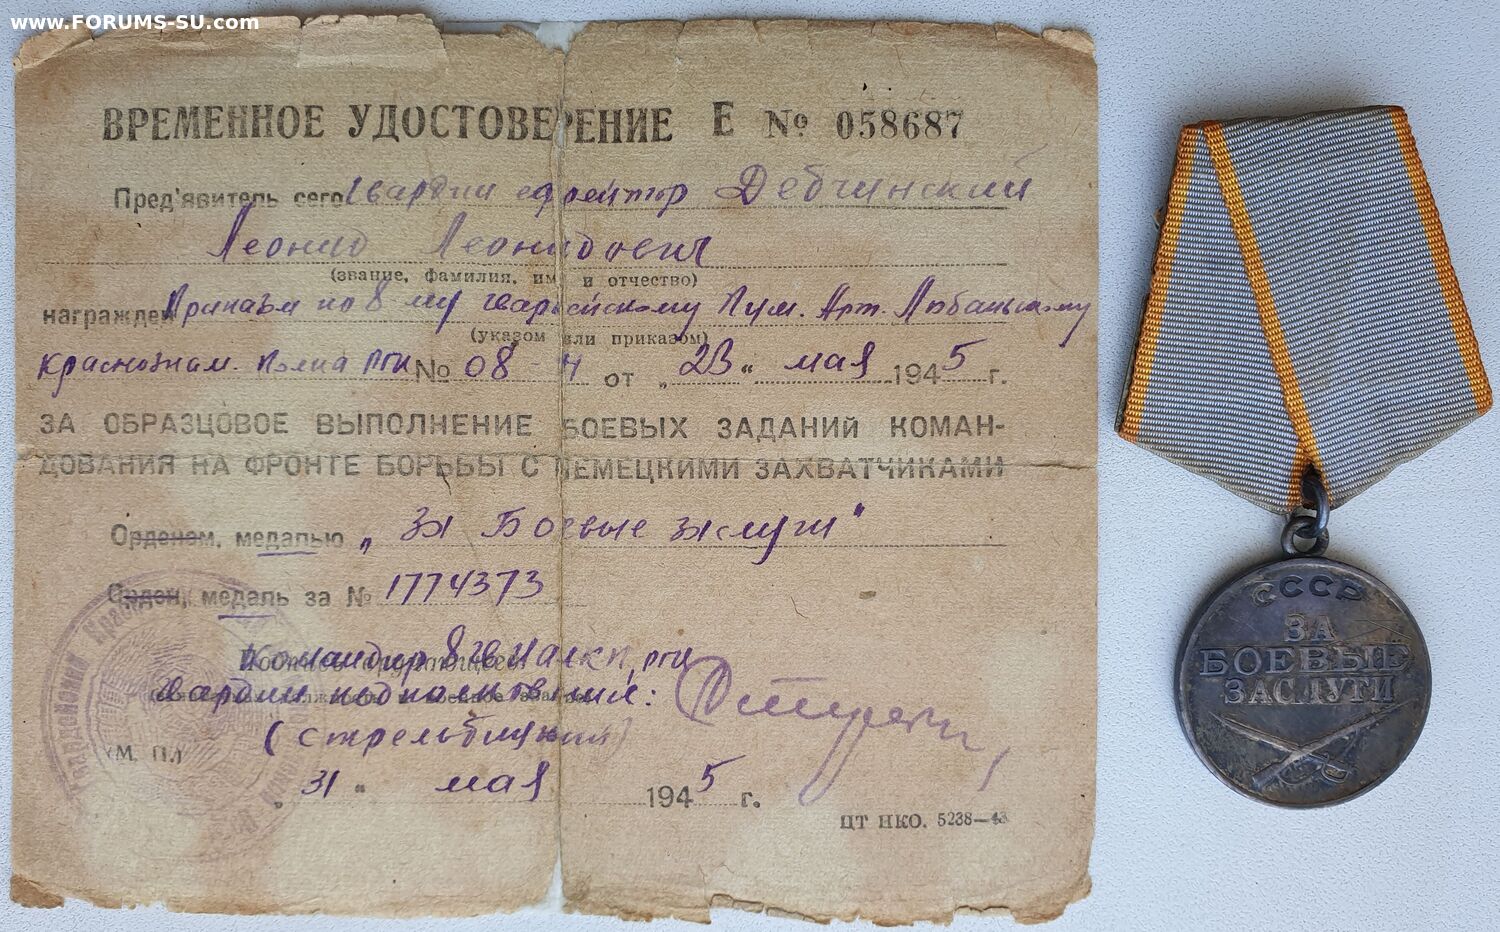 www.FORUMS-SU.com
ВРЕМЕННОЕ УДОСТОВЕРЕНИЕ Е № 058687
Пред'явитель сего Гвардии ефрейтор Дебчинский
Леонид Леонидович
(звание, фамилия, имя и отчество)
награжден Приказом по 8 му гвардейскому Пуш. Арт. Любаньскому
(указом или приказом)
краснознам. Полка РГК № 08-Н от „23“ мая 1945 г.
ЗА ОБРАЗЦОВОЕ ВЫПОЛНЕНИЕ БОЕВЫХ ЗАДАНИЙ КОМАН-
ДОВАНИЯ НА ФРОНТЕ БОРЬБЫ С НЕМЕЦКИМИ ЗАХВАТЧИКАМИ
Орденам, медалью „За Боевые заслуги"
Орден, медаль за № 1774373
Командир 8 гв. РГК
Гвардии подполковник:
(Стрельбицкий)
(М. П.)
„31“ мая 1945 г.
ЦТ НКО. 5238—43
СССР
ЗА
БОЕВЫЕ
ЗАСЛУГИ